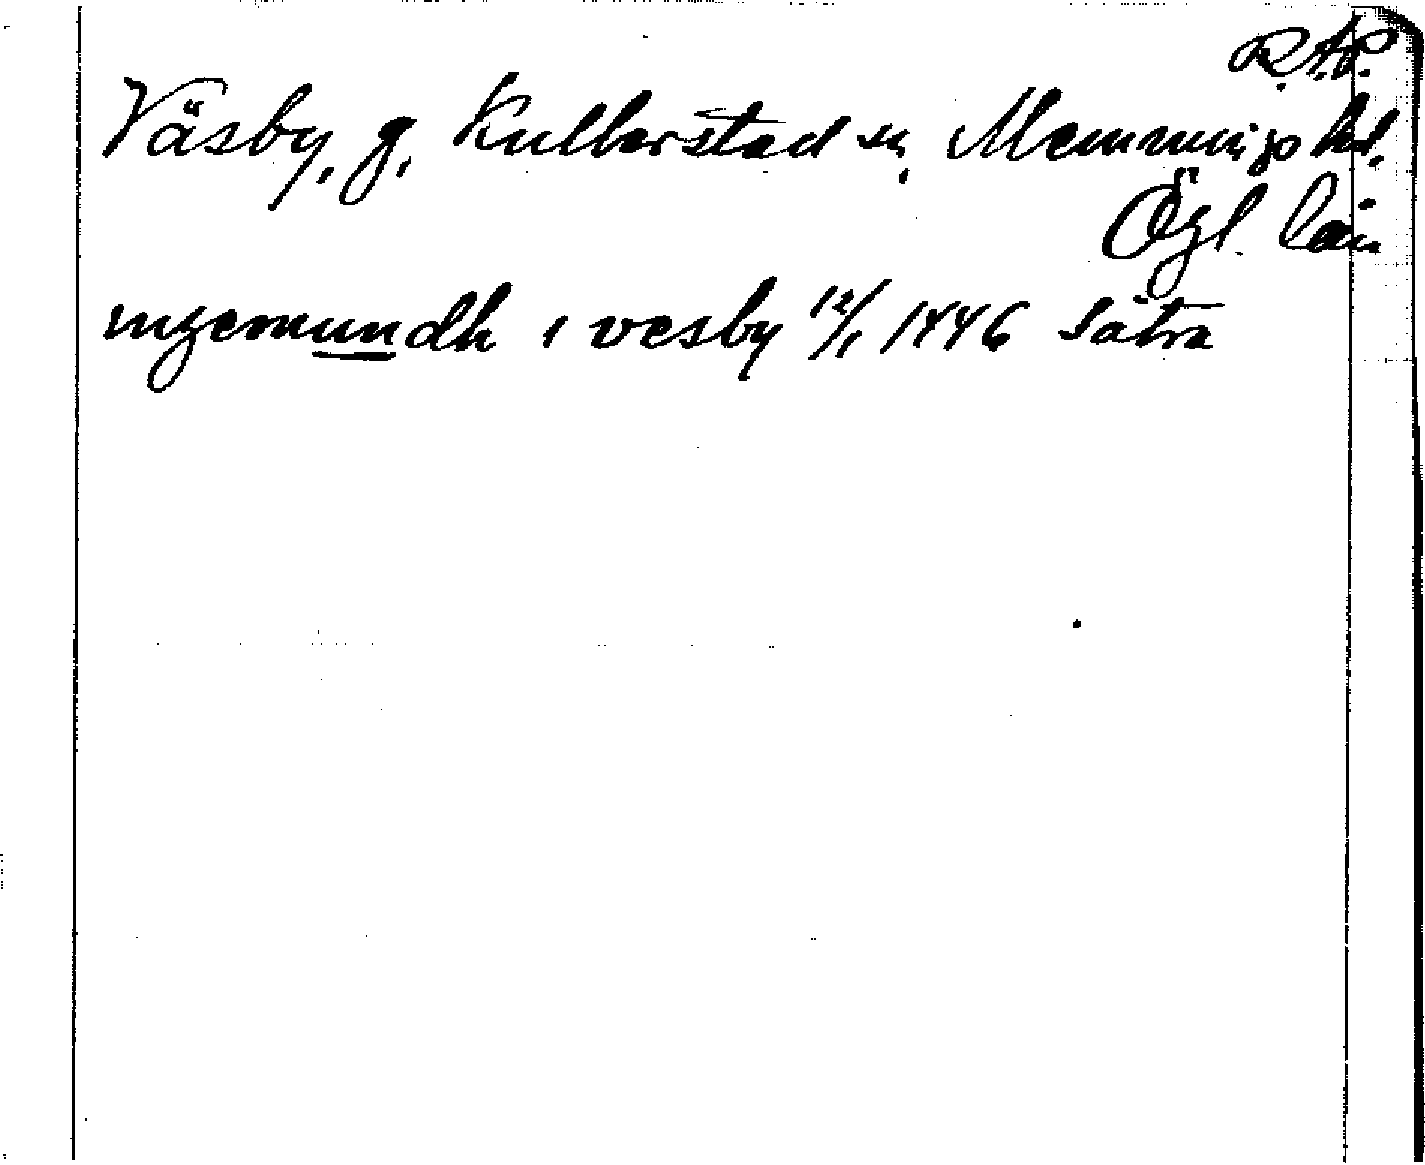 R.A.P.
Väsby, g, Kullerstad sn, Memmings hd.
Ögl. län
ingemundh i vesby 12/1 1446 Sätra